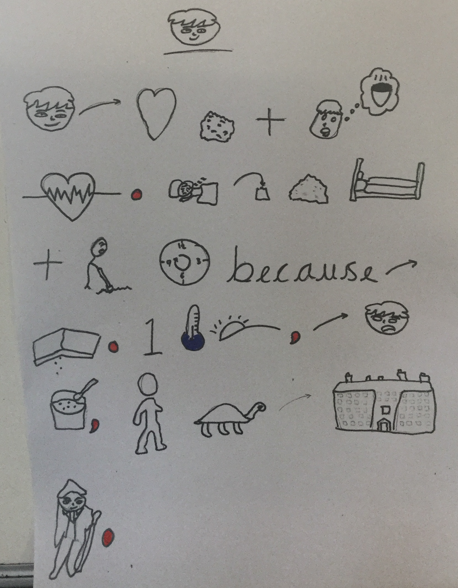 +
.
+ because
. 1 ,
,
.